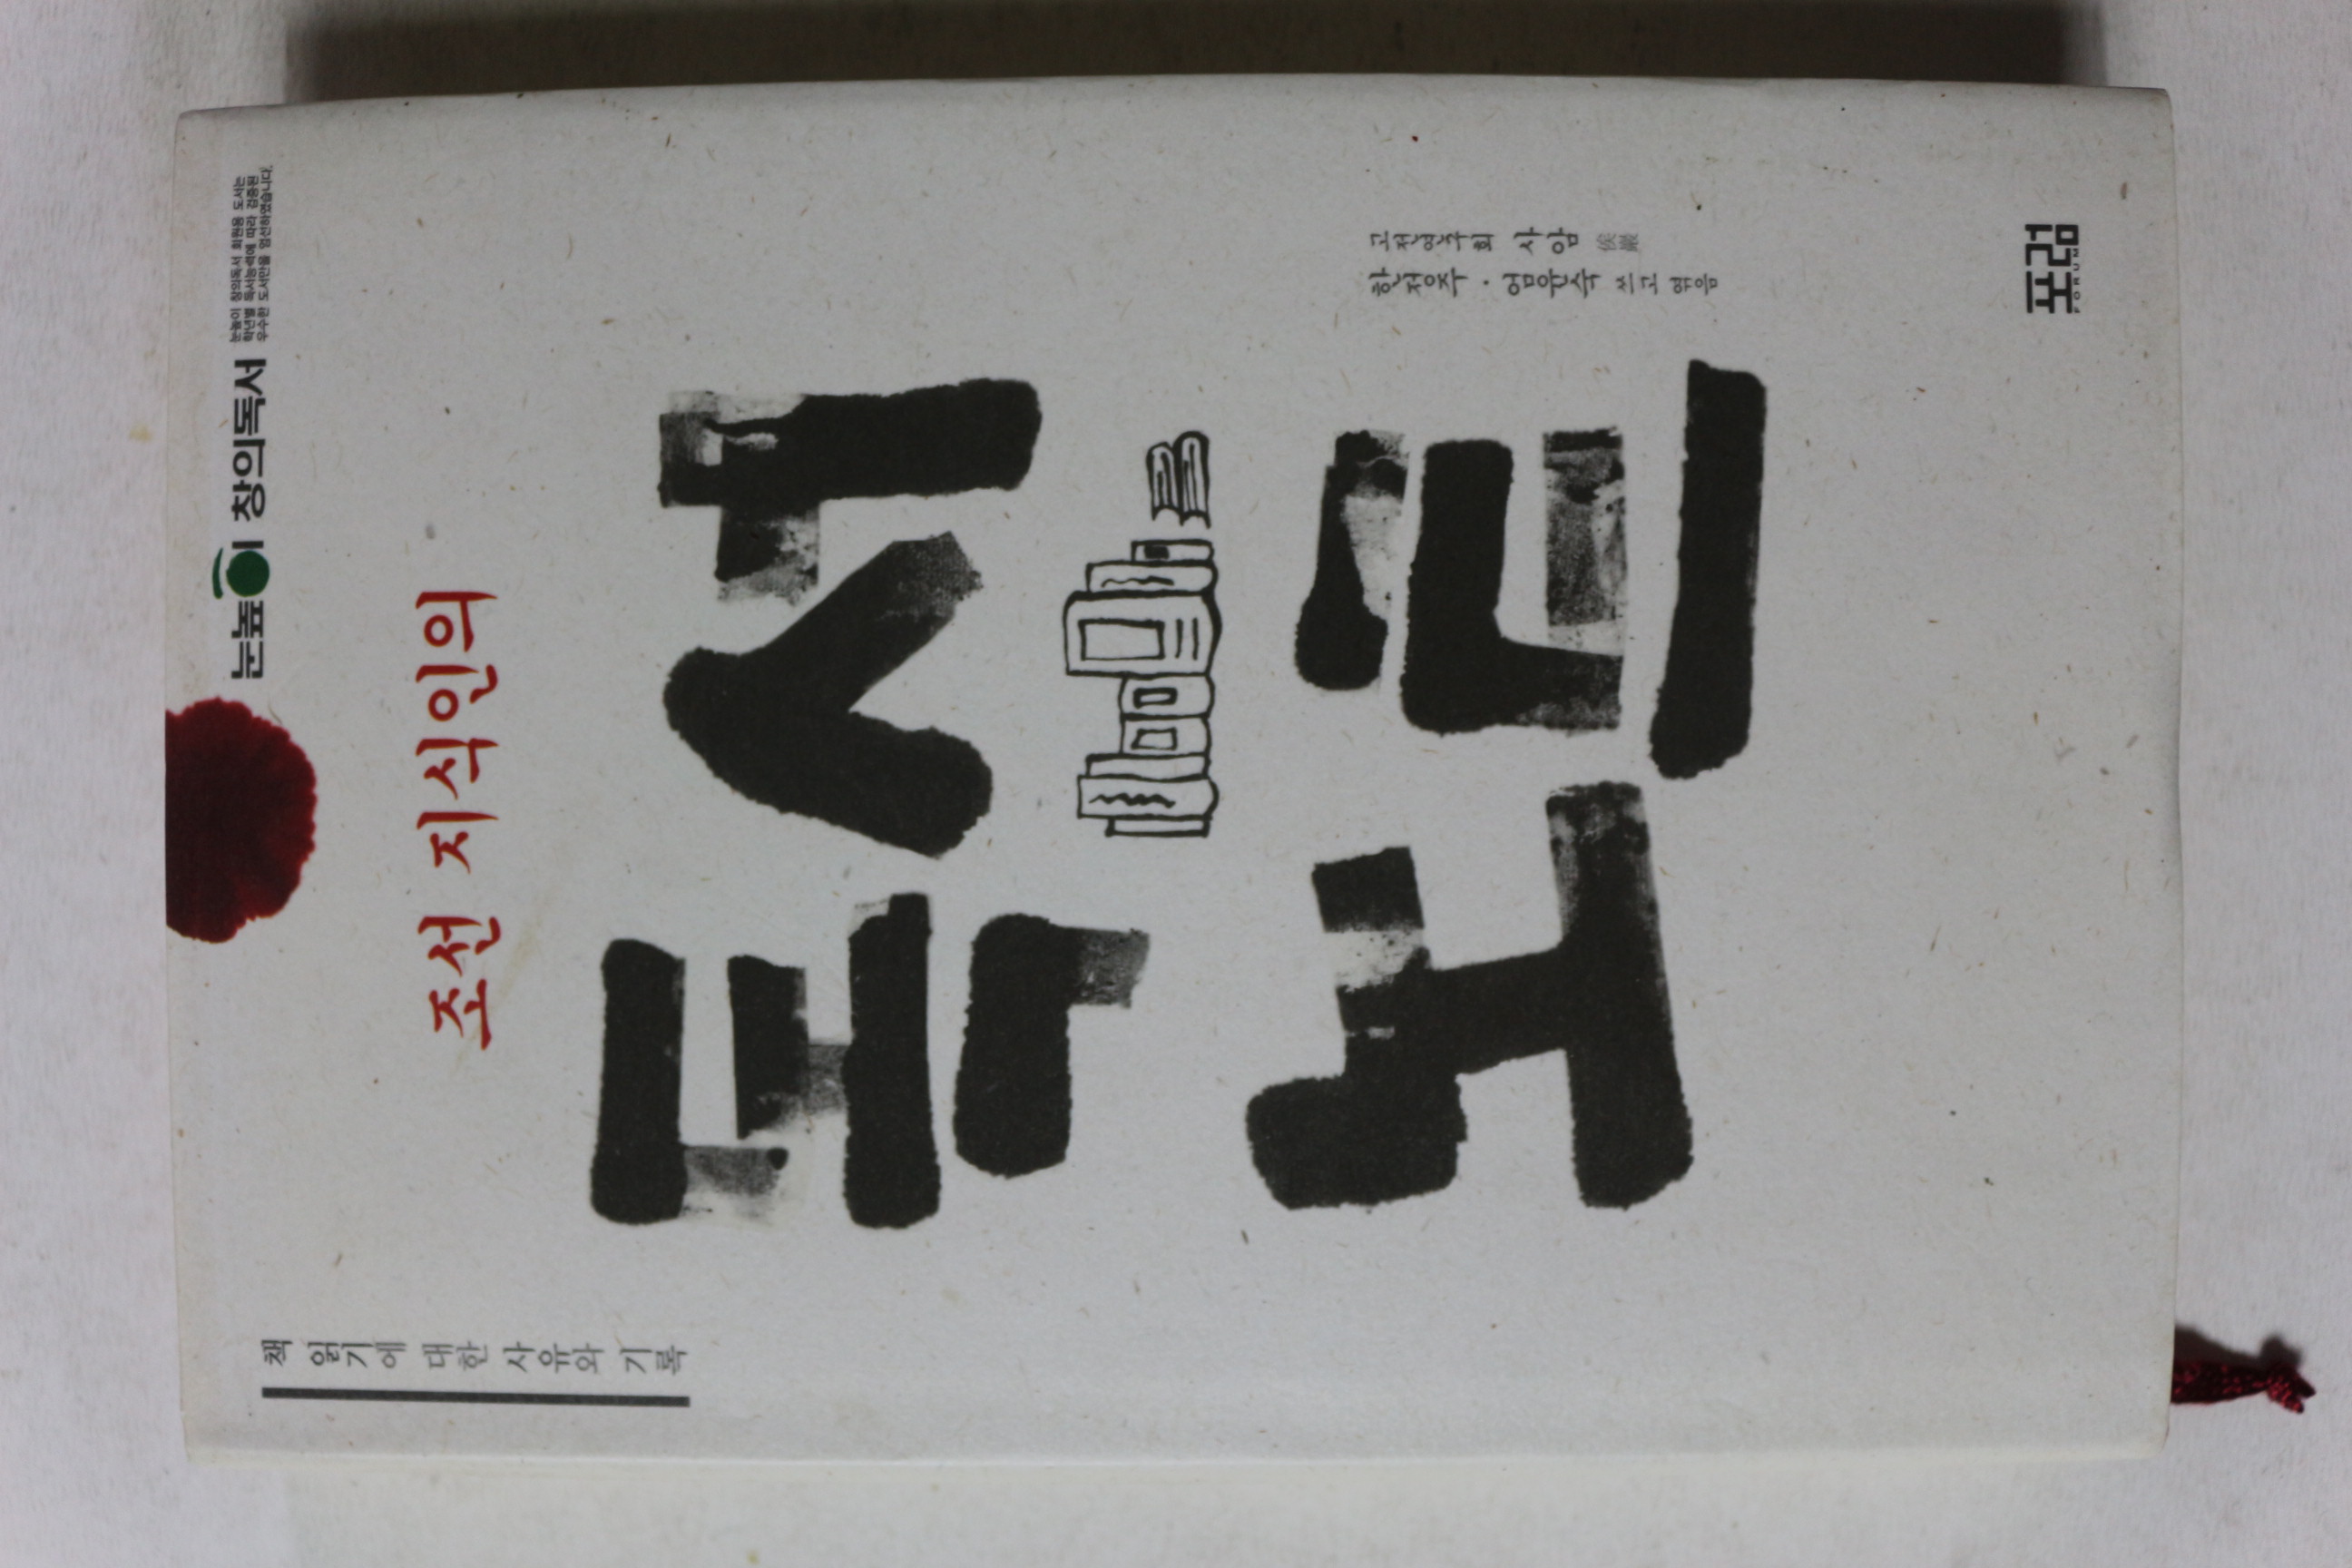 눈높이 창의독서
눈높이 창의독서 회원용 도서는
학년별 독서능력에 따라 검증된
우수한 도서만을 엄선하였습니다.
책 읽기에 대한 사유와 기록
조선 지식인의
독서
노트
고전연구회 사암 俟巖
한정주·엄윤숙 쓰고 엮음
포럼
FORUM